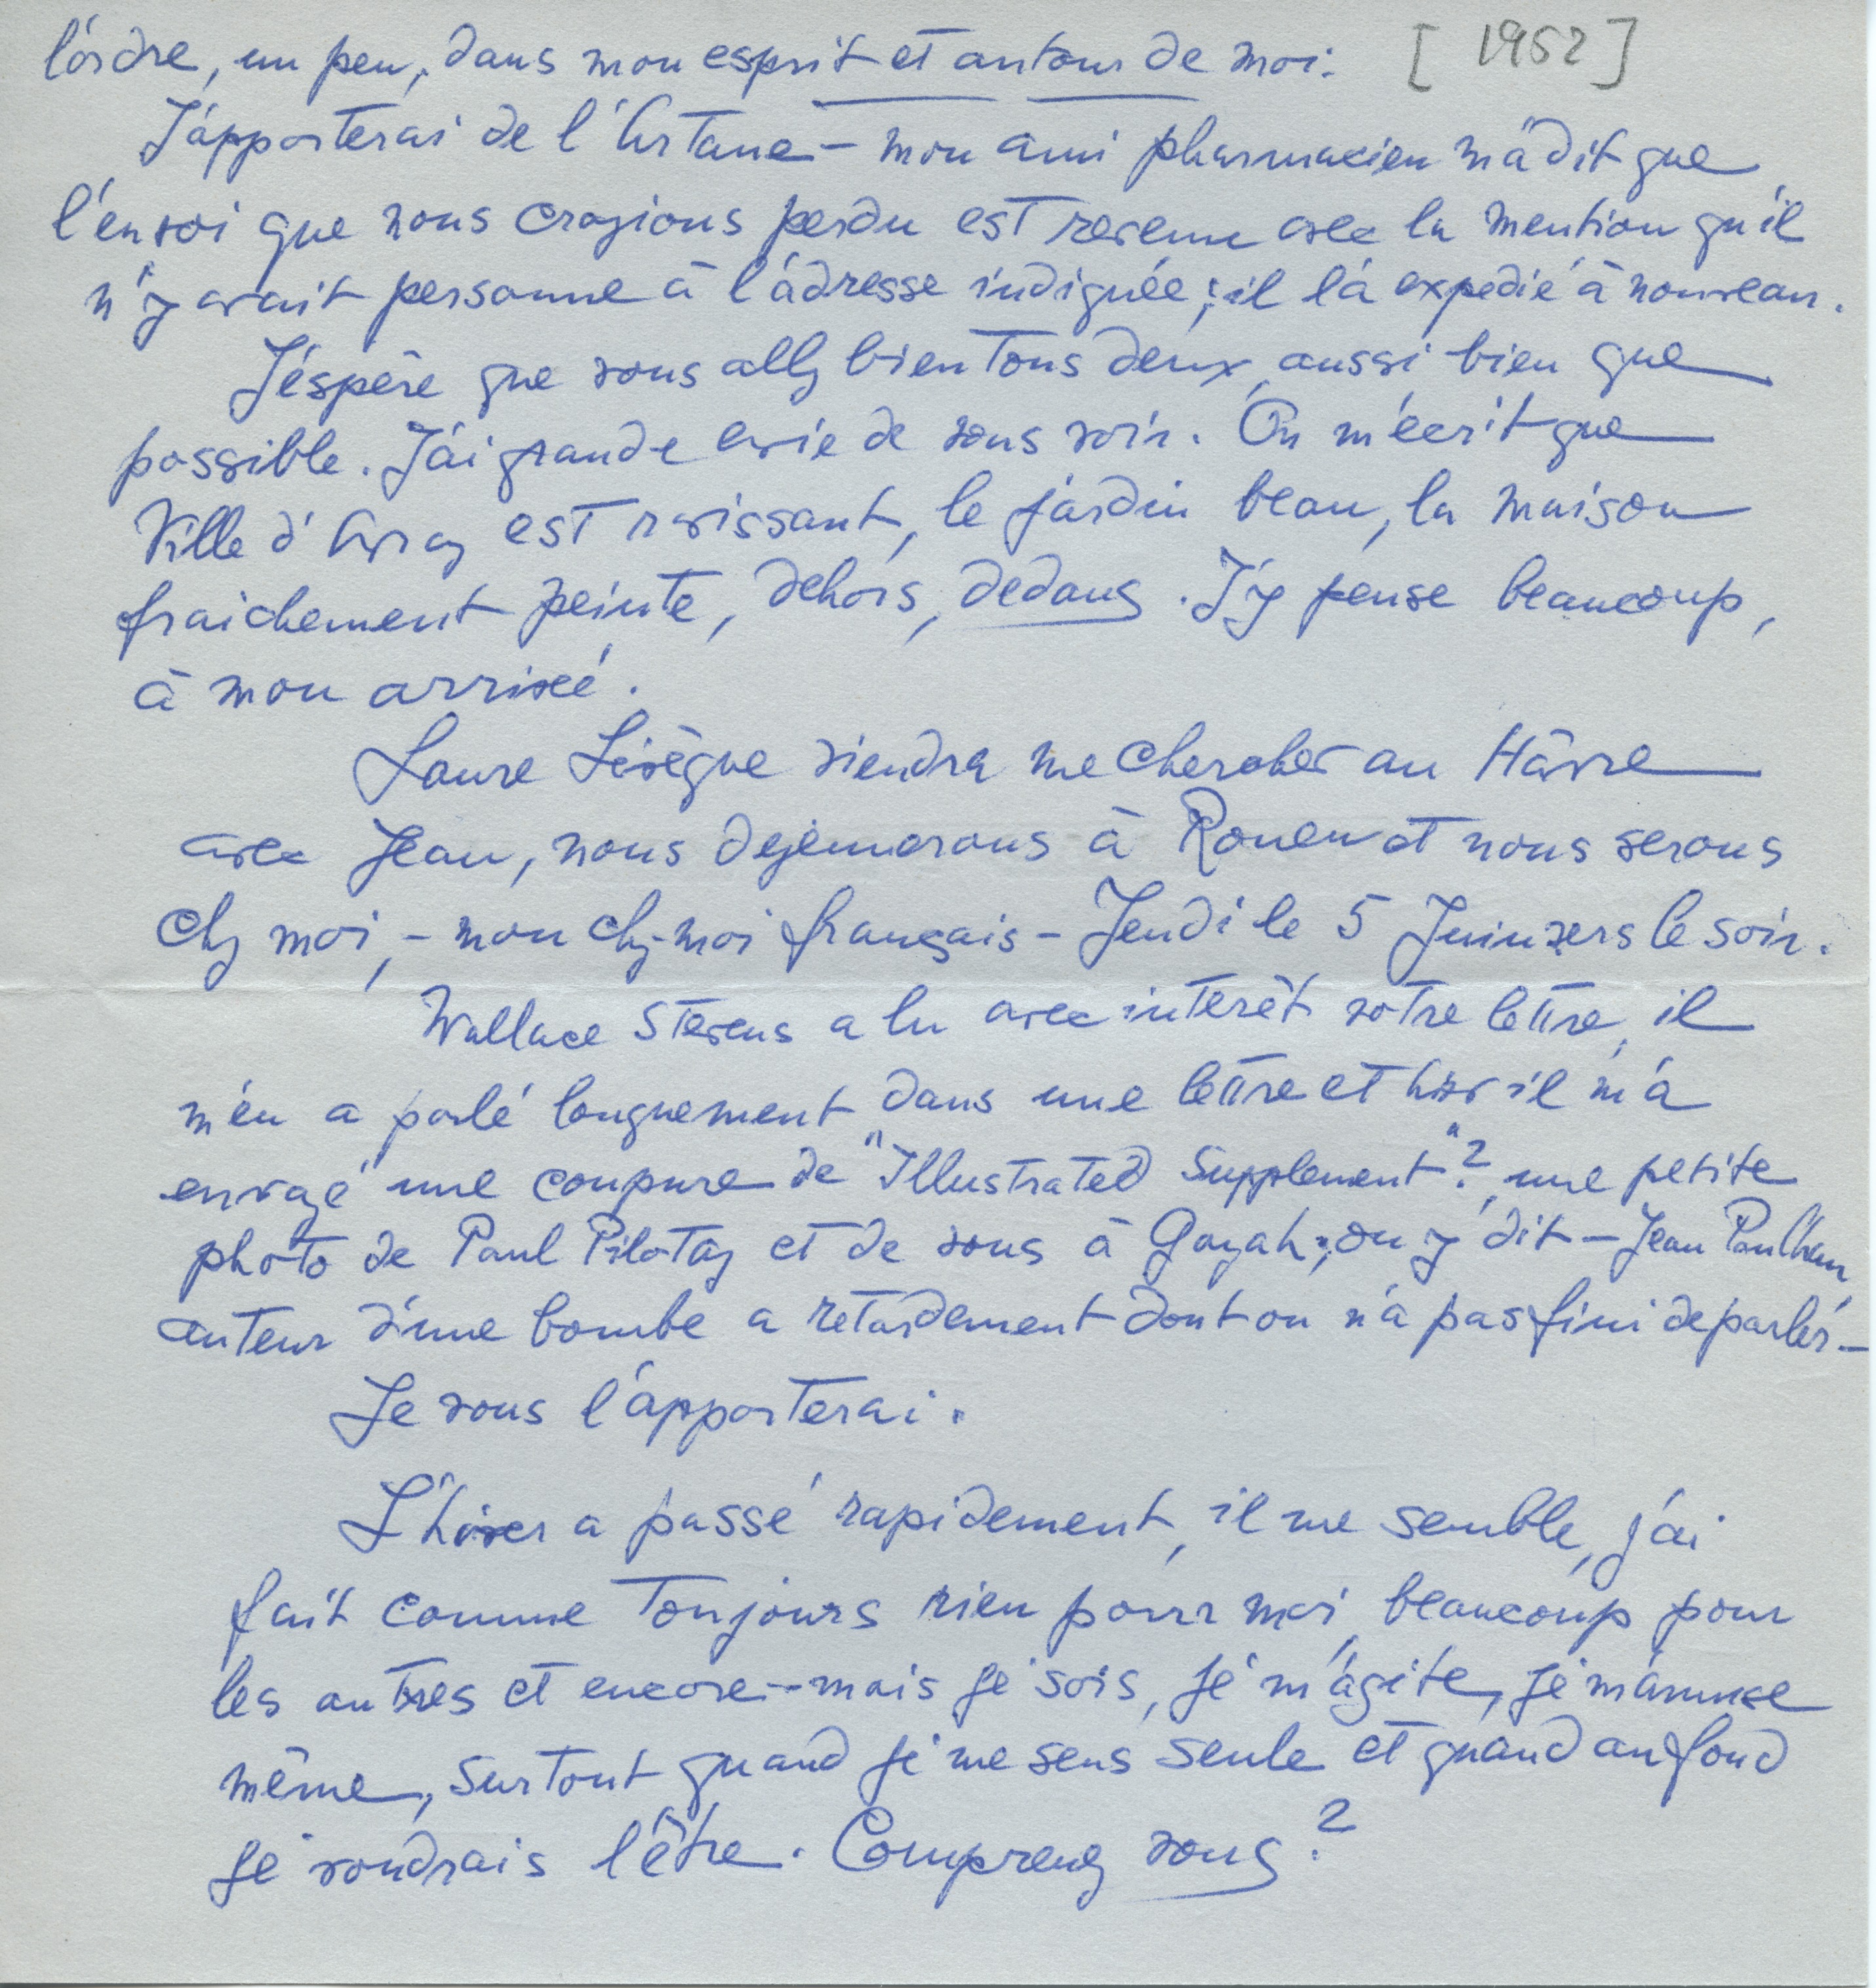 l'ordre, un peu, dans mon esprit et autour de moi. [1952]
J'apporterai de l'Artane – mon ami pharmacien m'a dit que
l'envoi que nous croyions perdu est revenu avec la mention qu'il
n'y avait personne à l'adresse indiquée; il l'a expedié à nouveau.
J'éspère que vous allez bien tous deux, aussi bien que
possible. J'ai grande envie de vous voir. On m'écrit que
Ville d'Avray est ravissant, le jardin beau, la maison
fraichement peinte, dehors, dedans. J'y pense beaucoup,
à mon arrivée.
Laure Lévêque viendra me chercher au Hâvre
avec Jean, nous dejeunerons à Rouen et nous serons
chez moi, – mon chez-moi français – Jeudi le 5 Juin vers le soir.
Wallace Stevens a lu avec intérèt votre lettre, il
m'en a parlé longuement dans une lettre et hier il m'a
envoyé une coupure de "Illustrated Supplement"?, une petite
photo de Paul Pilotaz et de vous à Gazah; on y dit – Jean Paulhan,
auteur d'une bombe a retardement dont on n'a pas fini de parler –
Je vous l'apporterai.
L'hiver a passé rapidement, il me semble, j'ai
fait comme toujours rien pour moi, beaucoup pour
les autres et encore – mais je vois, je m'agite, je m'amuse
même, surtout quand je me sens seule et quand au fond
je voudrais l'être. Comprenez vous?